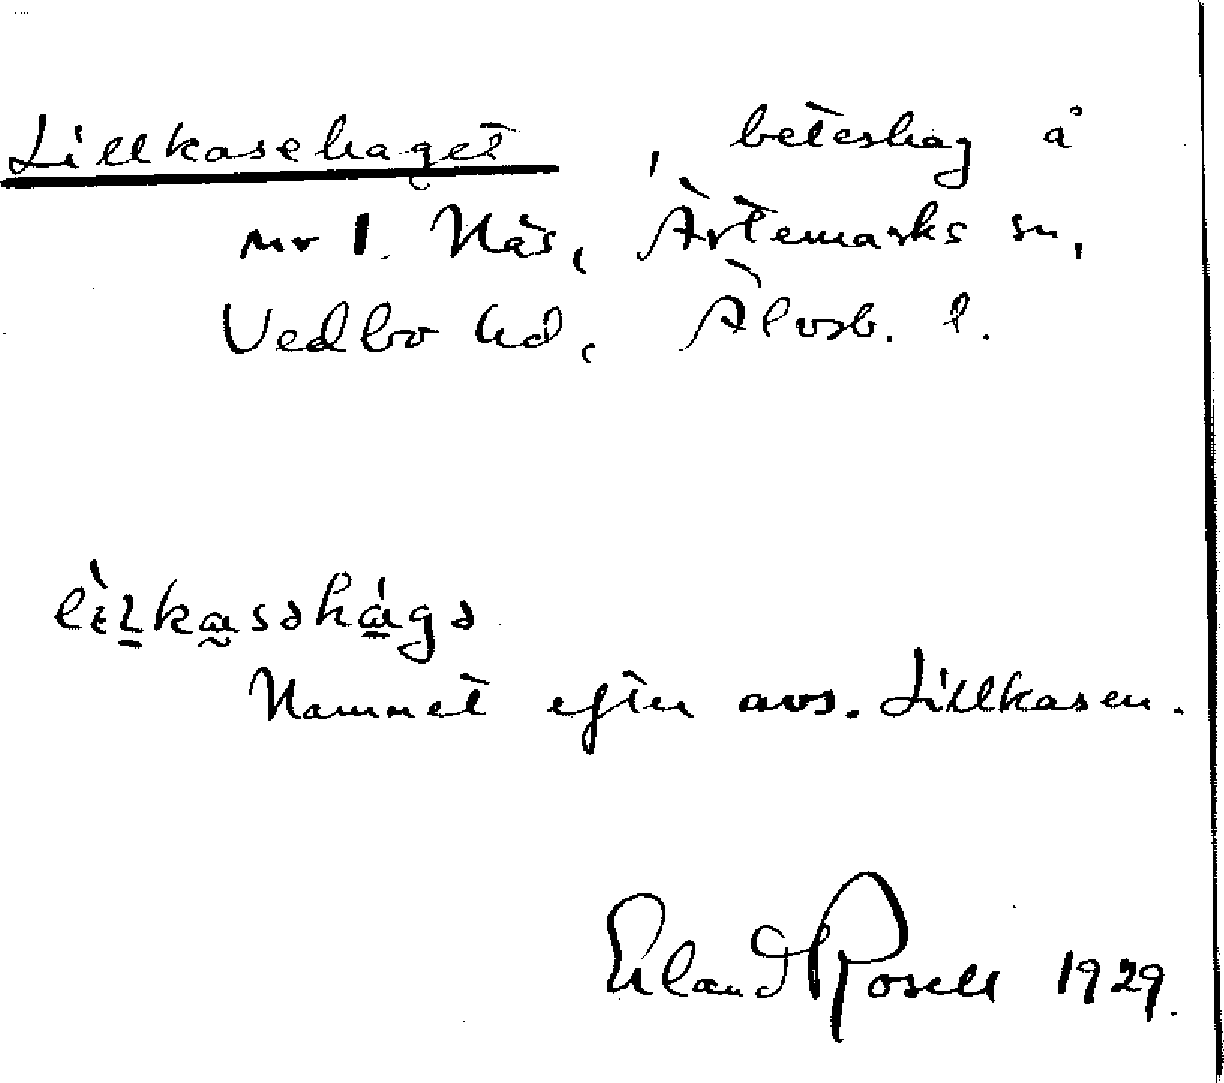 Lillkasehaget, beteshag å
nr 1. Näs, Ärtemarks sn,
Vedbo hd, Älvsb. l.
Namnet efter avs. Lillkasen.
Erland Rosell 1929.